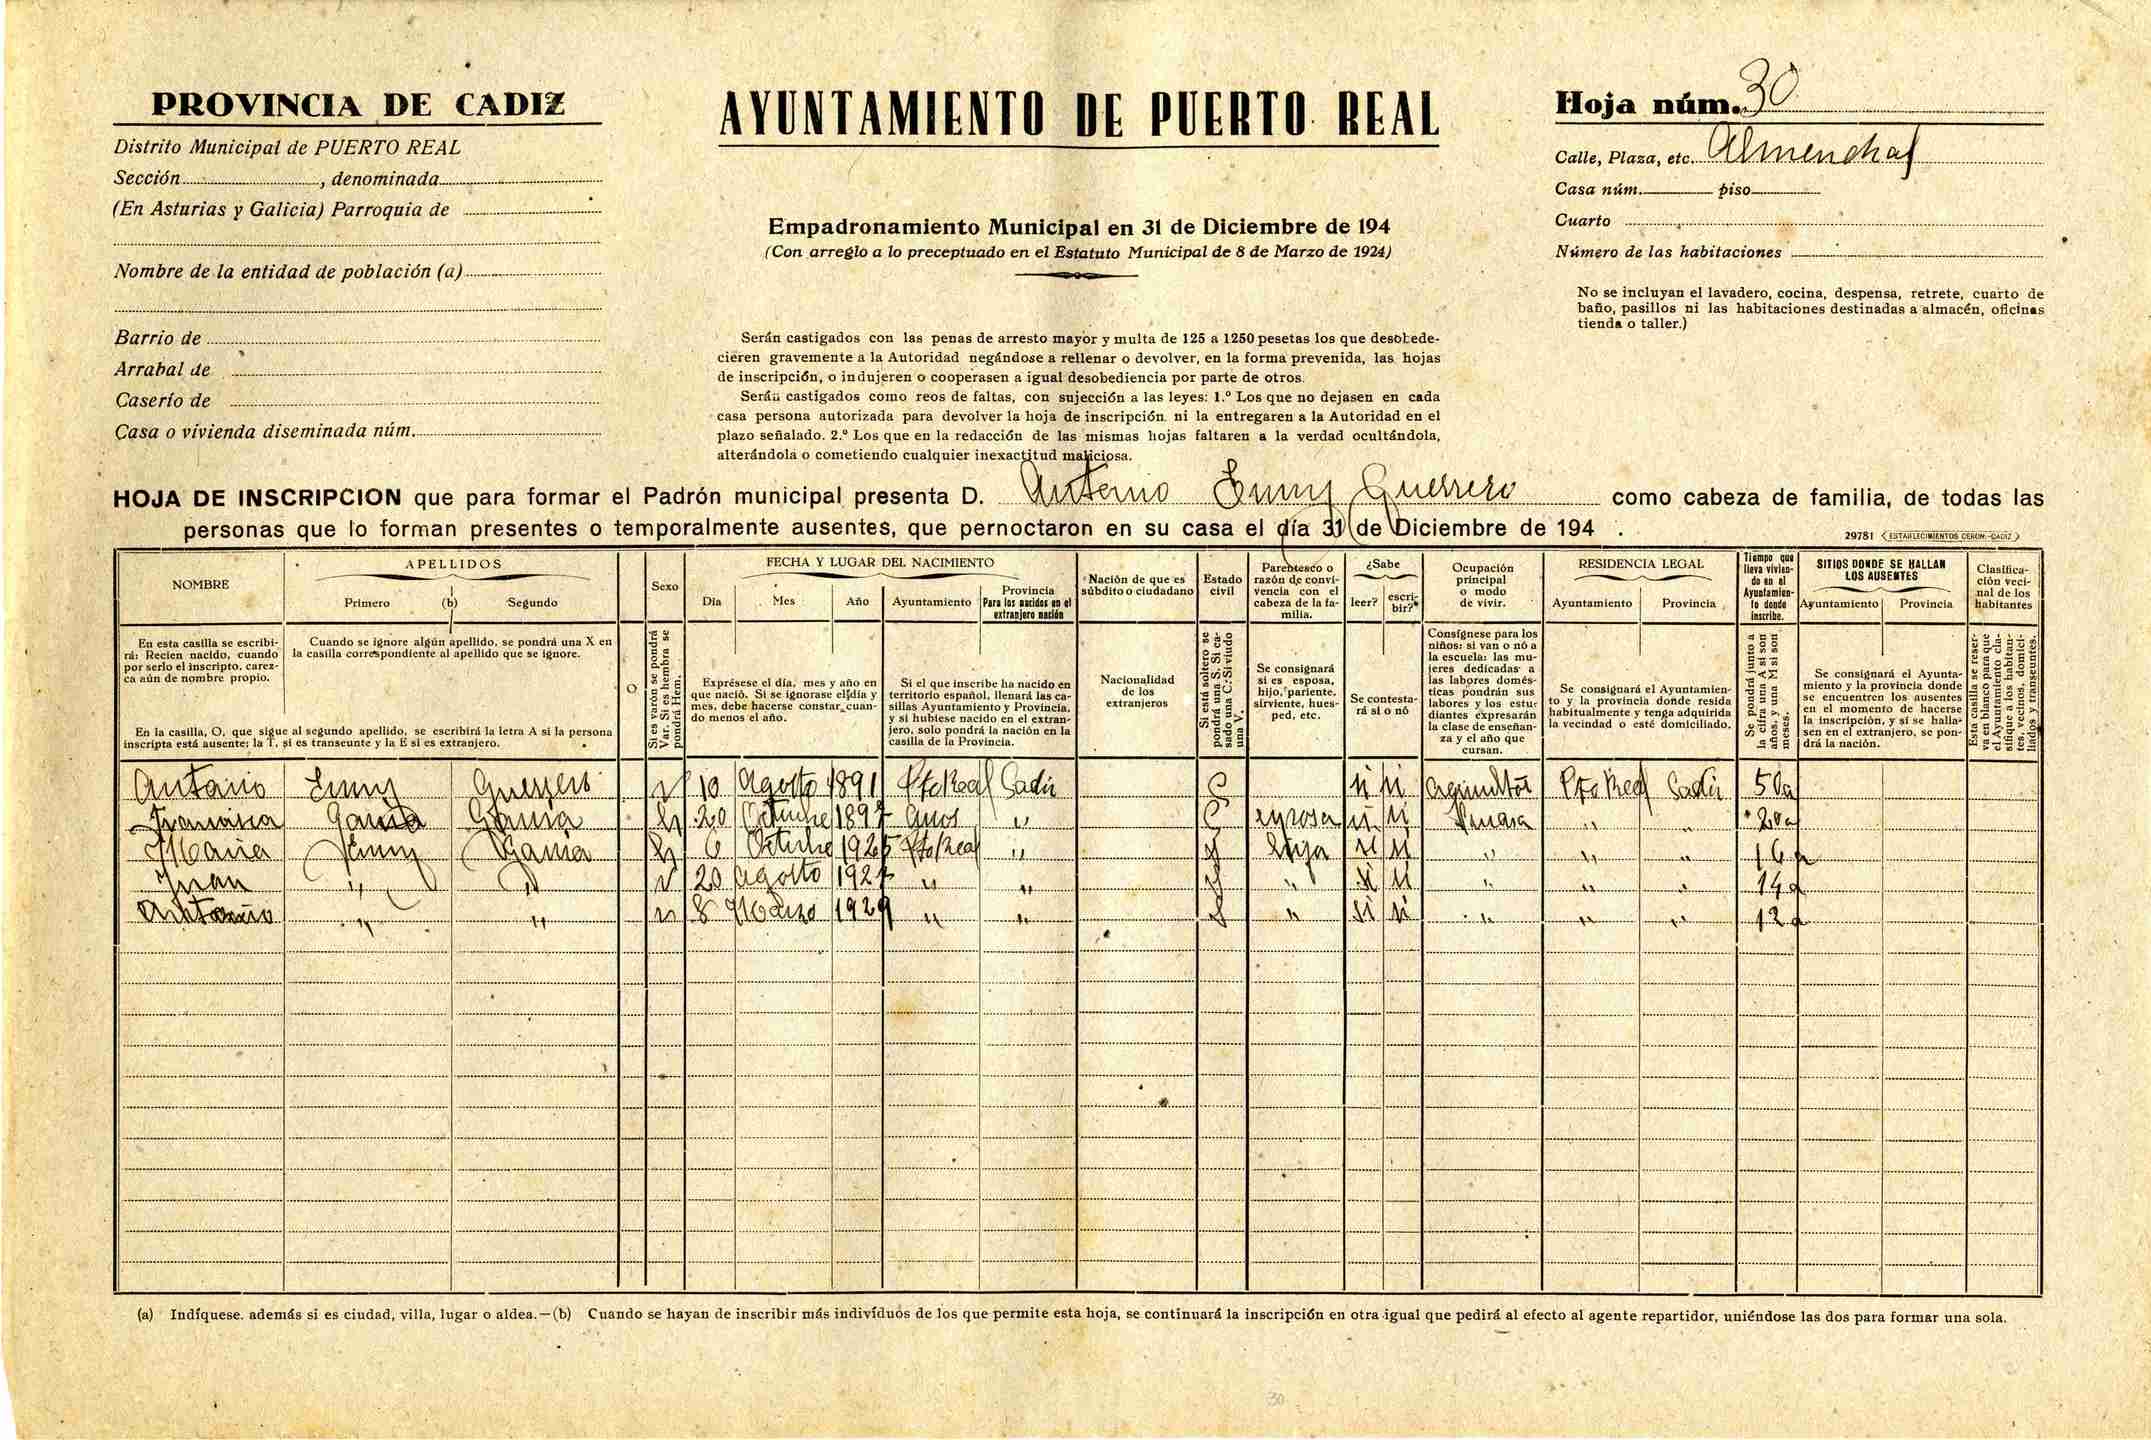 PROVINCIA DE CADIZ
Distrito Municipal de PUERTO REAL
Sección , denominada
(En Asturias y Galicia) Parroquia de
Nombre de la entidad de población (a)
Barrio de
Arrabal de
Caserío de
Casa o vivienda diseminada núm.
AYUNTAMIENTO DE PUERTO REAL
Empadronamiento Municipal en 31 de Diciembre de 194
(Con arreglo a lo preceptuado en el Estatuto Municipal de 8 de Marzo de 1924)
Serán castigados con las penas de arresto mayor y multa de 125 a 1250 pesetas los que desobede-
cieren gravemente a la Autoridad negándose a rellenar o devolver, en la forma prevenida, las hojas
de inscripción, o indujeren o cooperasen a igual desobediencia por parte de otros.
Serán castigados como reos de faltas, con sujección a las leyes: 1.º Los que no dejasen en cada
casa persona autorizada para devolver la hoja de inscripción. ni la entregaren a la Autoridad en el
plazo señalado. 2.º Los que en la redacción de las mismas hojas faltaren a la verdad ocultándola,
alterándola o cometiendo cualquier inexactitud maliciosa.
Hoja núm. 30
Calle, Plaza, etc. Almenchal
Casa núm. piso
Cuarto
Número de las habitaciones
No se incluyan el lavadero, cocina, despensa, retrete, cuarto de
baño, pasillos ni las habitaciones destinadas a almacén, oficinas
tienda o taller.)
HOJA DE INSCRIPCION que para formar el Padrón municipal presenta D. Antonio Guerrero como cabeza de familia, de todas las
personas que lo forman presentes o temporalmente ausentes, que pernoctaron en su casa el día 31 de Diciembre de 194 .
29781 ESTABLECIMIENTOS CERON.-CADIZ
NOMBRE
APELLIDOS
Primero (b) Segundo
Sexo
FECHA Y LUGAR DEL NACIMIENTO
Dia Mes Año Ayuntamiento
Provincia
Para los nacidos en el
extranjero nación
Nación de que es
súbdito o ciudadano
Estado
civil
Parentesco o
razón de convi-
vencia con el
cabeza de la fa-
milia.
¿Sabe
leer? escri-
bir?
Ocupación
principal
o modo
de vivir.
RESIDENCIA LEGAL
Ayuntamiento Provincia
Tiempo que
lleva vivien-
do en el
Ayuntamien-
to donde
inscribe.
SITIOS DONDE SE HALLAN
LOS AUSENTES
Ayuntamiento Provincia
Clasifica-
ción veci-
nal de los
habitantes
En esta casilla se escribi-
rá: Recien nacido, cuando
por serlo el inscripto, carez-
ca aún de nombre propio.
Cuando se ignore algún apellido, se pondrá una X en
la casilla correspondiente al apellido que se ignore.
En la casilla, O, que sigue al segundo apellido, se escribirá la letra A si la persona
inscripta está ausente; la T, si es transeunte y la E si es extranjero.
O
Si es varón se pondrá
Var. Si es hembra se
pondrá Hem.
Exprésese el día, mes y año en
que nació. Si se ignorase el día y
mes, debe hacerse constar cuan-
do menos el año.
Si el que inscribe ha nacido en
territorio español, llenará las ca-
sillas Ayuntamiento y Provincia,
y si hubiese nacido en el extran-
jero, solo pondrá la nación en la
casilla de la Provincia.
Nacionalidad
de los
extranjeros
Si está soltero se
pondrá una S. Si ca-
sado una C. Si viudo
una V.
Se consignará
si es esposa,
hijo, pariente,
sirviente, hues-
ped, etc.
Se contesta-
rá si o nó
Consígnese para los
niños: si van o nó a
la escuela: las mu-
jeres dedicadas a
las labores domés-
ticas pondrán sus
labores y los estu-
diantes expresarán
la clase de enseñan-
za y el año que
cursan.
Se consignará el Ayuntamien-
to y la provincia donde resida
habitualmente y tenga adquirida
la vecindad o esté domiciliado.
Se pondrá junto a
la cifra una A si son
años, y una M si son
meses.
Se consignará el Ayunta-
miento y la provincia donde
se encuentren los ausentes
en el momento de hacerse
la inscripción, y si se halla-
sen en el extranjero, se pon-
drá la nación.
Esta casilla se reser-
va en blanco para que
el Ayuntamiento cla-
sifique a los habitan-
tes, vecinos, domici-
liados y transeuntes.
Antonio Guerrero v 10 Agosto 1891 Pto Real Cadiz C si si agricultor Pto Real Cadiz 50a
Francisca Garcia Garcia h 20 Octubre 1897 " C esposa si si " " 20a
Maria Garcia h 6 Octubre 1925 Pto Real " S hija si si " " " 16a
Juan " " v 20 Agosto 1927 " " S " si si " " " 14a
Antonio " " v 8 Marzo 1929 " " S " si si " " " 12a
(a) Indíquese. además si es ciudad, villa, lugar o aldea.—(b) Cuando se hayan de inscribir más indivíduos de los que permite esta hoja, se continuará la inscripción en otra igual que pedirá al efecto al agente repartidor, uniéndose las dos para formar una sola.
30